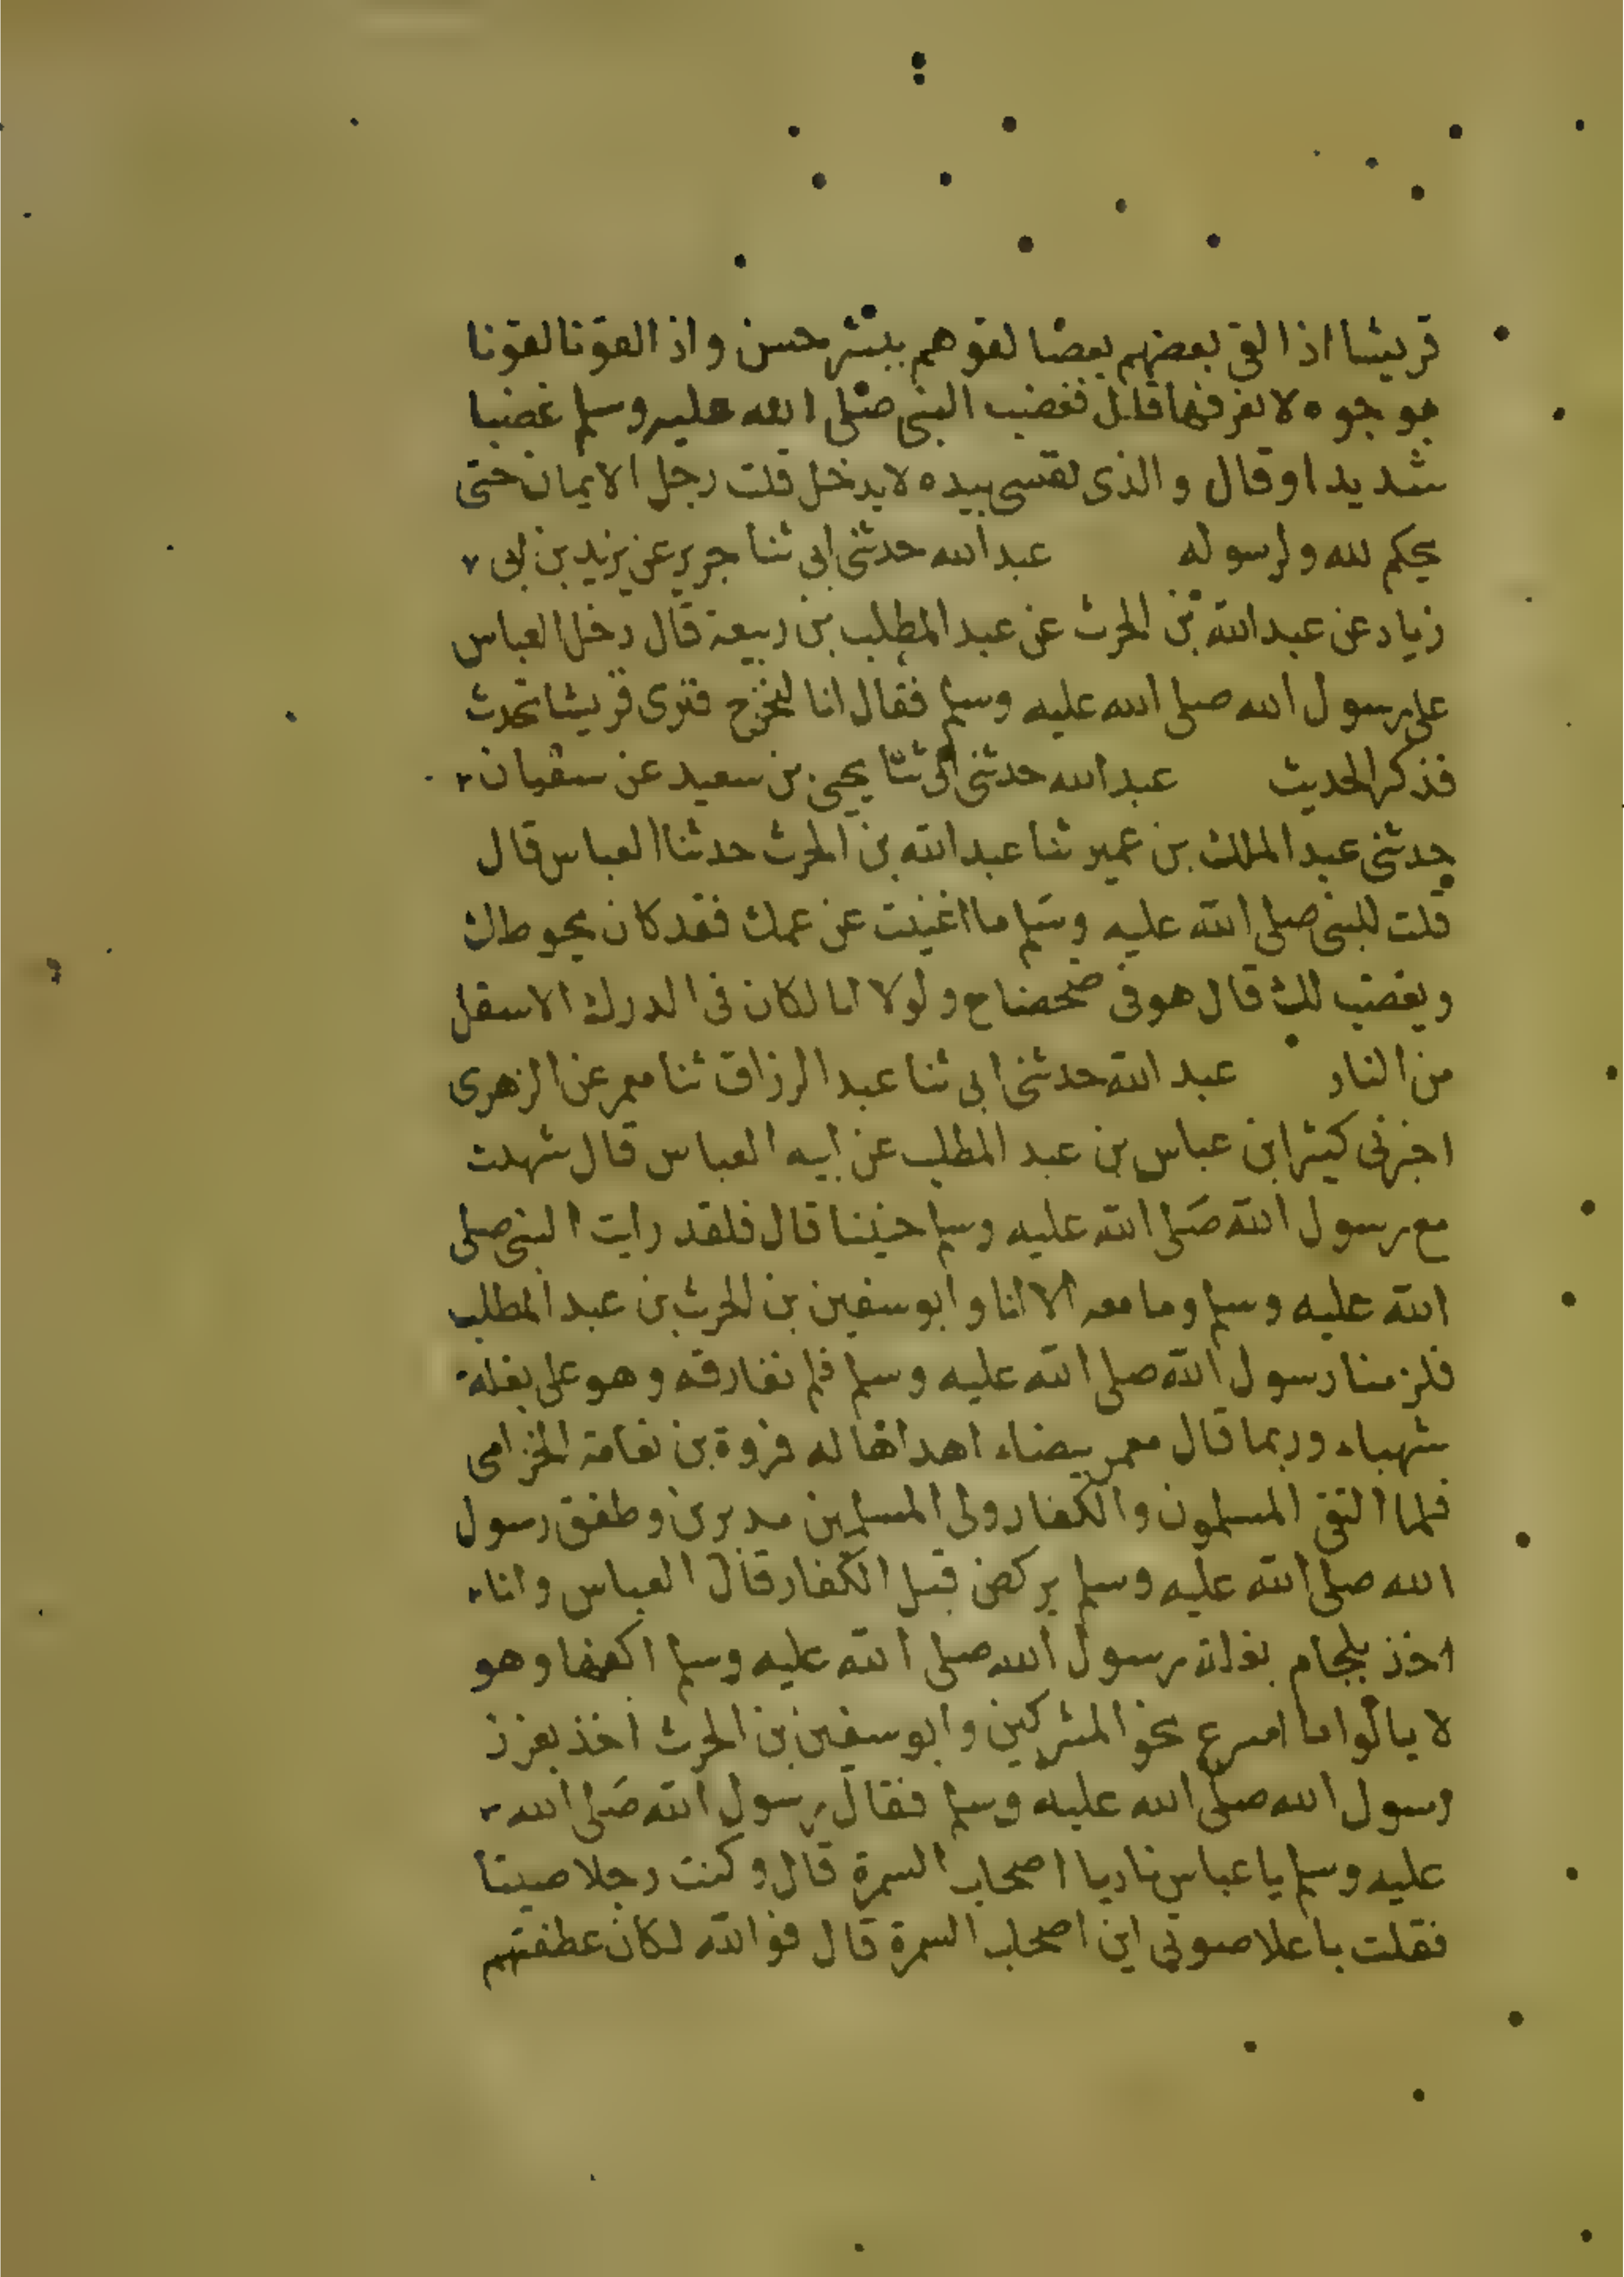 قريشا اذا لقى بعضهم بعضا لقوهم ببشر حسن واذا لقونا لقونا
بوجوه لا نعرفها قال فغضب النبى صلى الله عليه وسلم غضبا
شديدا وقال والذى نفسى بيده لا يدخل قلب رجل الايمان حتى
يحبكم لله ولرسوله عبد الله حدثنى ابى ثنا جرير عن يزيد بن ابى
زياد عن عبد الله بن الحرث عن عبد المطلب بن ربيعة قال دخل العباس
على رسول الله صلى الله عليه وسلم فقال انا لنخرج فنرى قريشا تحدث
فذكر الحديث عبد الله حدثنى ابى ثنا يحيى بن سعيد عن سفيان
حدثنى عبد الملك بن عمير ثنا عبد الله بن الحرث حدثنا العباس قال
قلت للنبى صلى الله عليه وسلم ما اغنيت عن عمك فقد كان يحوطك
ويغضب لك قال هو فى ضحضاح ولولا انا لكان فى الدرك الاسفل
من النار عبد الله حدثنى ابى ثنا عبد الرزاق ثنا معمر عن الزهرى
اخبرنى كثير ابن عباس بن عبد المطلب عن ابيه العباس قال شهدت
مع رسول الله صلى الله عليه وسلم حنينا قال فلقد رايت النبى صلى
الله عليه وسلم وما معه الا انا وابو سفين بن الحرث بن عبد المطلب
فلزمنا رسول الله صلى الله عليه وسلم فلم نفارقه وهو على بغلة
شهباء وربما قال معمر بيضاء اهداها له فروة بن نعامة الجزامى
فلما التقى المسلمون والكفار ولى المسلمين مدبرين وطفق رسول
الله صلى الله عليه وسلم يركض قبل الكفار قال العباس وانا
اخذ بلجام بغلة رسول الله صلى الله عليه وسلم اكفها وهو
لا يالوا ما اسرع نحو المشركين وابو سفين بن الحرث اخذ بغرز
رسول الله صلى الله عليه وسلم فقال رسول الله صلى الله
عليه وسلم يا عباس ناد يا اصحاب السمرة قال وكنت رجلا صيتا
فقلت باعلا صوتى اين اصحاب السمرة قال فوالله لكان عطفتهم